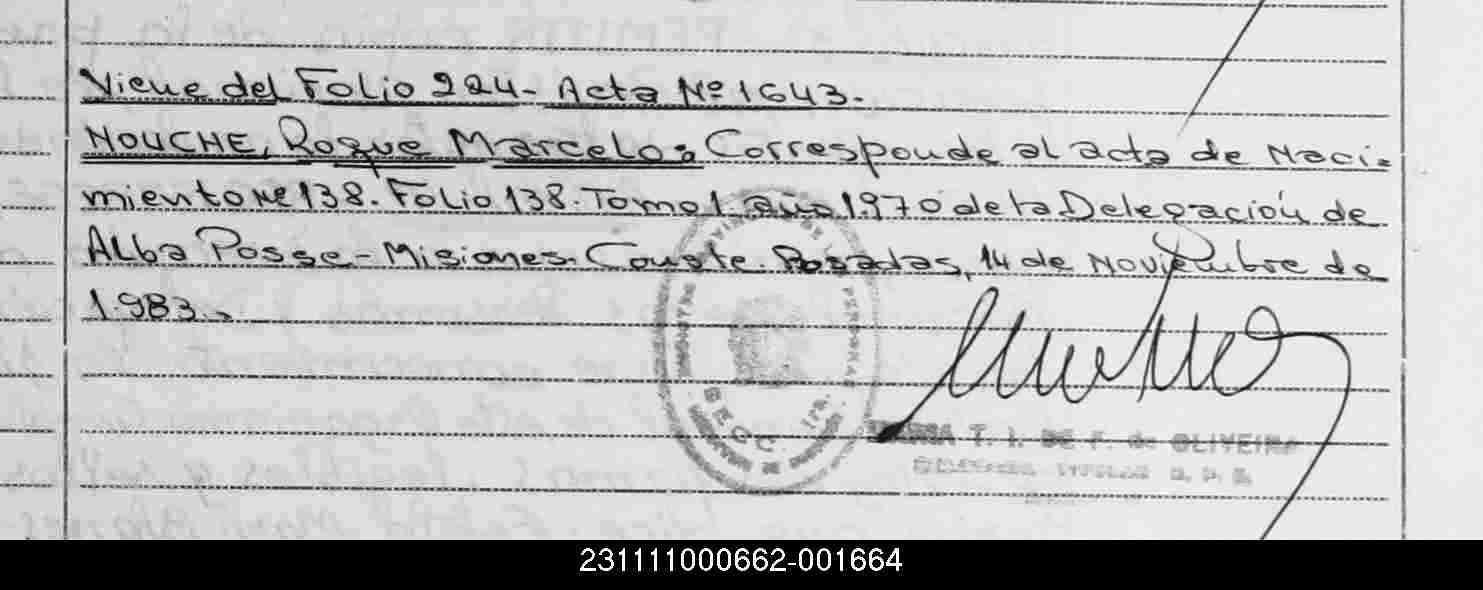 Viene del Folio 224- Acta Nº 1643.-
NOUCHE, Roque Marcelo: Corresponde al acta de Naci=
miento Nº 138. Folio 138. Tomo 1 año 1.970 de la Delegación de
Alba Posse - Misiones. Conste. Posadas, 14 de Noviembre de
1.983.-
SECC. 1ra.
T. I. DE F. de OLIVEIRA
231111000662-001664